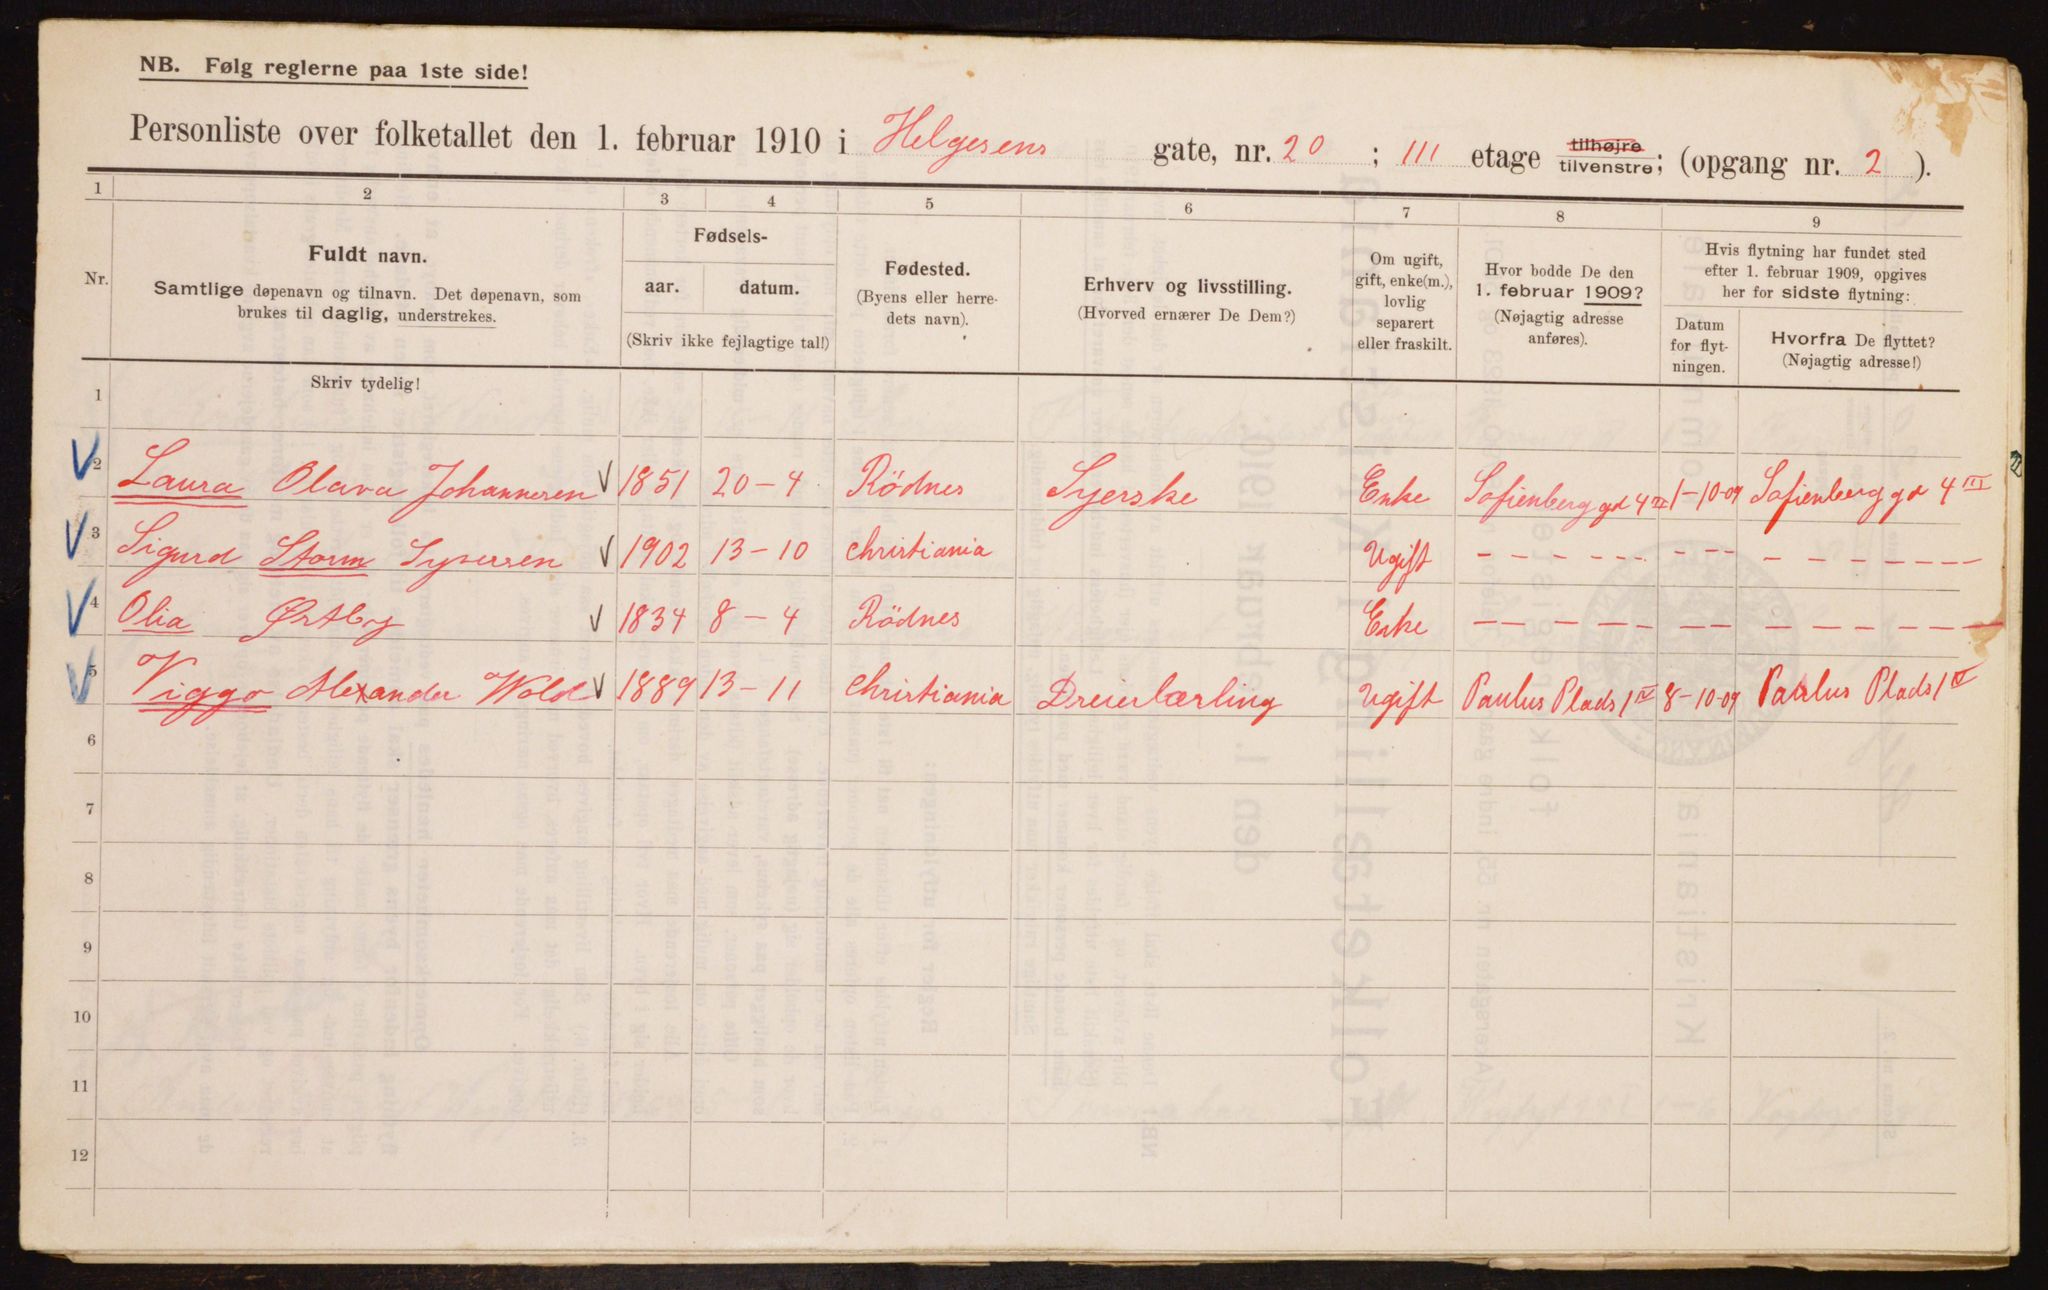 NB. Følg reglerne paa 1ste side!
Personliste over folketallet den 1. februar 1910 i Helgesens gate, nr. 20 ; III etage tilhøjre tilvenstre; (opgang nr. 2 ).
1 2 3 4 5 6 7 8 9
Nr.
Fuldt navn.
Samtlige døpenavn og tilnavn. Det døpenavn, som
brukes til daglig, understrekes.
Fødsels-
aar. datum.
(Skriv ikke fejlagtige tal!)
Fødested.
(Byens eller herre-
dets navn).
Erhverv og livsstilling.
(Hvorved ernærer De Dem?)
Om ugift,
gift, enke(m.),
lovlig
separert
eller fraskilt.
Hvor bodde De den
1. februar 1909?
(Nøjagtig adresse
anføres).
Hvis flytning har fundet sted
efter 1. februar 1909, opgives
her for sidste flytning:
Datum
for flyt-
ningen.
Hvorfra De flyttet?
(Nøjagtig adresse!)
Skriv tydelig!
1
2 Laura Olava Johannesen 1851 20 - 4 Rödnes Syerske Enke Sofienberg gd 4 III 1-10-09 Sofienberg gd 4 III
3 Sigurd Storm Syversen 1902 13 - 10 Christiania Ugift
4 Olia Østby 1834 8 - 4 Rödnes Enke
5 Viggo Alexander Wold 1889 13 - 11 Christiania Dreierlærling Ugift Paulus Plads 1 IV 8-10-09 Paulus Plads 1 IV
6
7
8
9
10
11
12